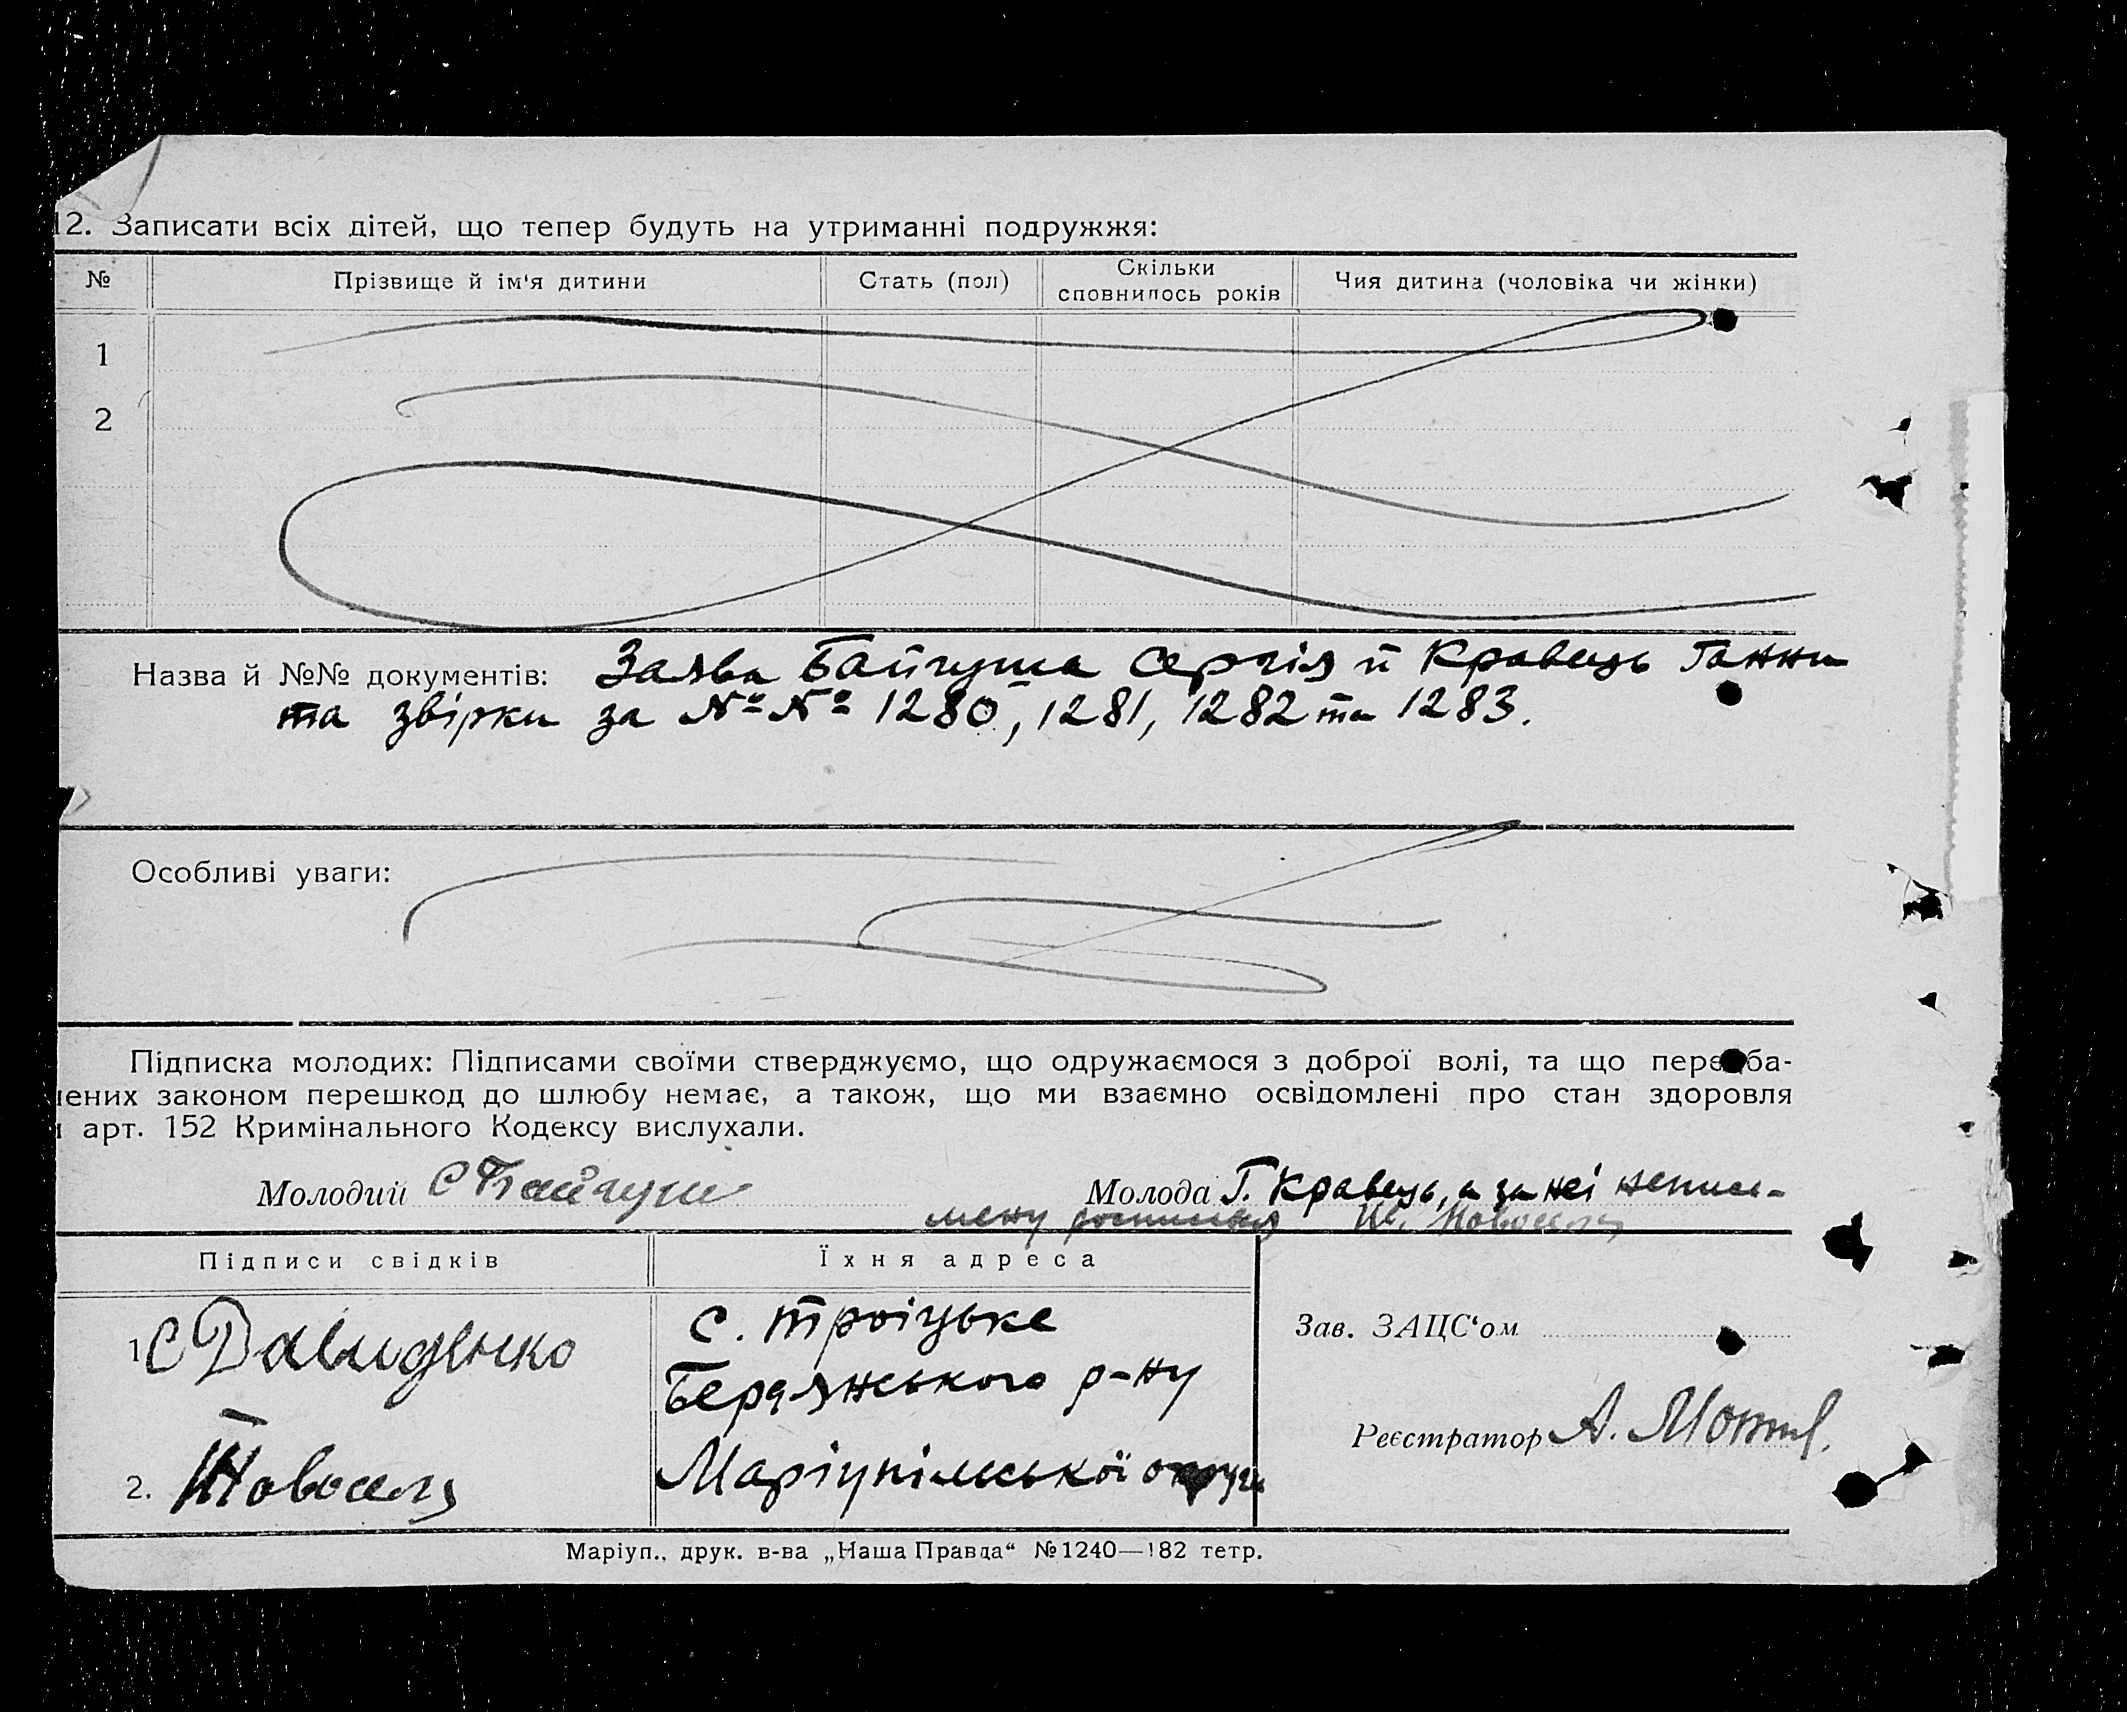 12. Записати всіх дітей, що тепер будуть на утриманні подружжя:
№ Прізвище й ім'я дитини Стать (пол) Скільки сповнилось років Чия дитина (чоловіка чи жінки)
1
2
Назва й №№ документів: Заява Байгуша Сергія й Кравець Ганни
та звірки за №№ 1280, 1281, 1282 та 1283.
Особливі уваги:
Підписка молодих: Підписами своїми стверджуємо, що одружаємося з доброї волі, та що передба-
чених законом перешкод до шлюбу немає, а також, що ми взаємно освідомлені про стан здоровля
й арт. 152 Кримінального Кодексу вислухали.
Молодий С Байгуш Молода Г. Кравець, а за неі непись-
мену росписався
Підписи свідків Їхня адреса
1 С Давиденко с. Троіцьке
Бердянського р-ну
2. Маріупільської округи
Зав. ЗАЦС'ом
Реєстратор А.
Маріуп., друк. в-ва „Наша Правда“ № 1240—182 тетр.